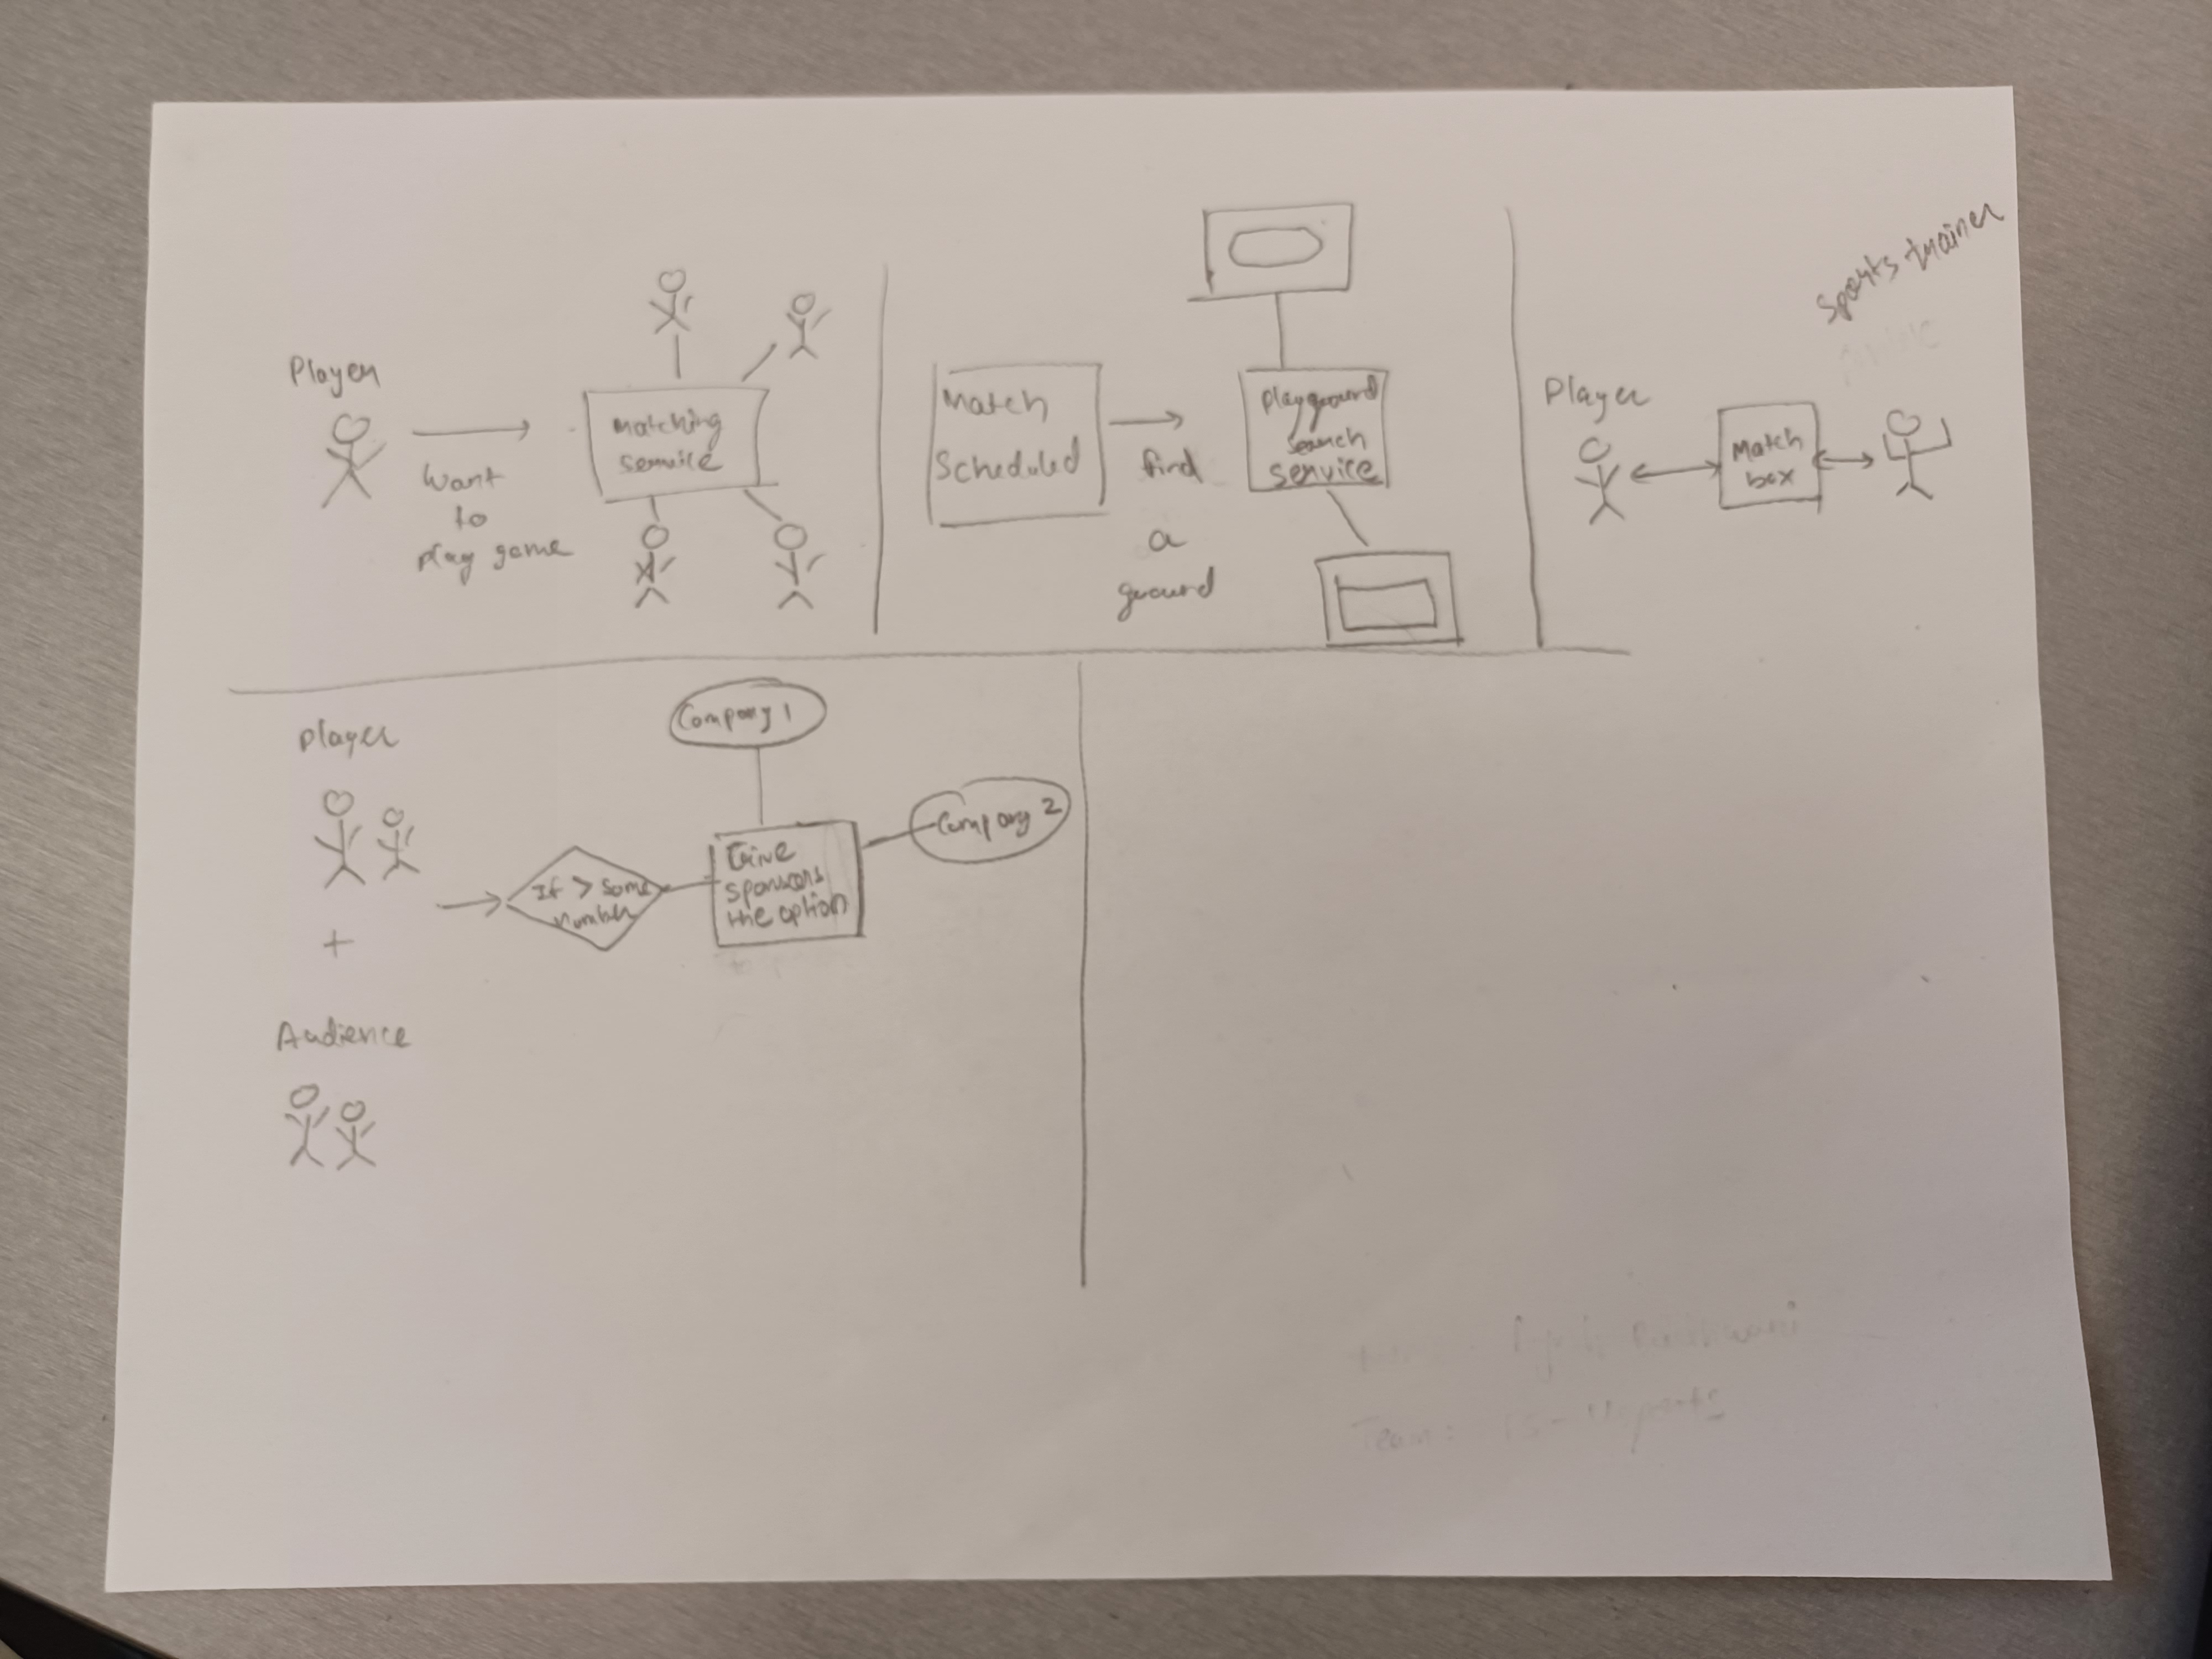 Player
Want
to
play game
Matching
service
Match
Scheduled
find
a
ground
playground
search
service
Player
Match
box
Sports trainer
player
+
Audience
If > some
number
Company 1
Give
sponsors
the option
Company 2
Team: